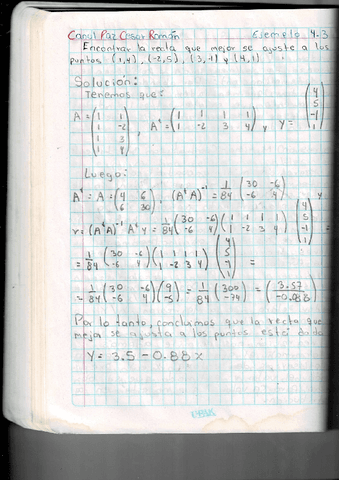 Canul Paz Cesar Román Ejemplo 4.3
Encontrar la recta que mejor se ajuste a los
puntos (1,4), (-2,5), (3,-1) y (4,1)
Solución:
Tenemos que:
A = (1 1; 1 -2; 1 3; 1 4), Aᵗ = (1 1 1 1; 1 -2 3 4) y Y = (4; 5; -1; 1)
Luego:
Aᵗ = A = (4 6; 6 30), (AᵗA)⁻¹ = 1/84 (30 -6; -6 4) y
v = (AᵗA)⁻¹ Aᵗ Y = 1/84 (30 -6; -6 4) (1 1 1 1; 1 -2 3 4) (4; 5; -1; 1)
= 1/84 (30 -6; -6 4) (1 1 1 1; 1 -2 3 4) (4; 5; -1; 1) =
= 1/84 (30 -6; -6 4) (9; -5) = 1/84 (300; -74) = (3.57; -0.88)
Por lo tanto, concluimos que la recta que
mejor se ajusta a los puntos está dada
Y = 3.5 - 0.88 x